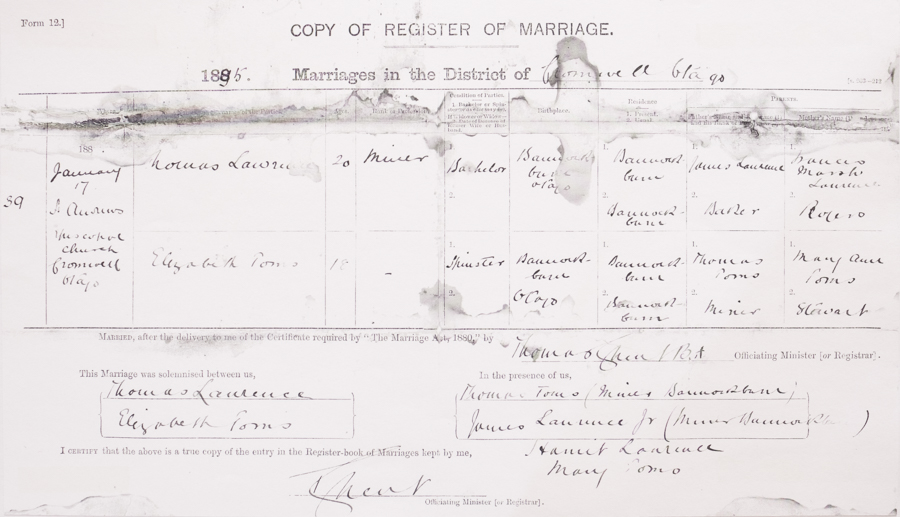 Form 12.]
COPY OF REGISTER OF MARRIAGE.
1885. Marriages in the District of Cromwell Otago
Condition of Parties.
Birthplace.
Residence
Parents.
1. Present.
2. Usual.
188
January
17
St Andrews
Episcopal
Church
Cromwell
Otago
59
Thomas Lawrence
20
Miner
Bachelor
Bannock
burn
Otago
1.
Bannock
burn
2.
Bannock-
burn
1.
James Laurence
2.
Baker
1.
Frances
Marsh
Laurence
2.
Rogers
Elizabeth Toms
18
-
1.
Spinster
2.
Bannock-
burn
Otago
1.
Bannock-
burn
2.
Bannock-
burn
1.
Thomas
Toms
2.
Miner
1.
Mary Ann
Toms
2.
Stewart
Married, after the delivery to me of the Certificate required by "The Marriage Act, 1880," by
Thomas Officiating Minister [or Registrar].
This Marriage was solemnised between us,
Thomas Laurence
Elizabeth Toms
In the presence of us,
Thomas Toms (Miner Bannockburn)
James Laurence Jr (Miner Bannockb )
Harriet Laurence
Mary Toms
I certify that the above is a true copy of the entry in the Register-book of Marriages kept by me,
Officiating Minister [or Registrar].